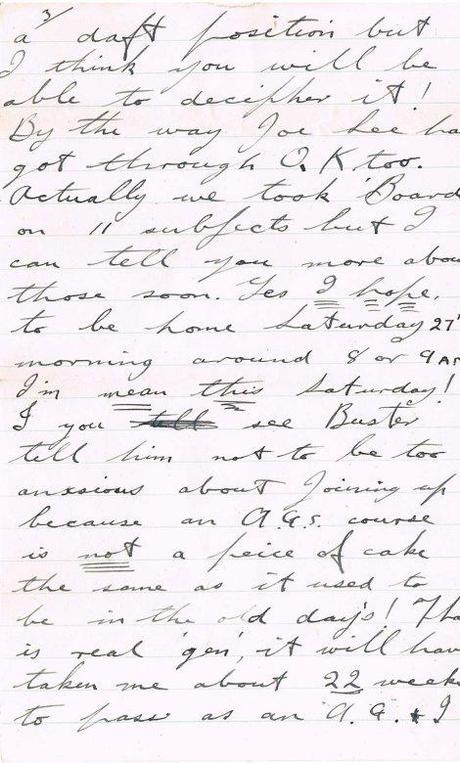 3/
a daft position but
I think you will be
able to decipher it!
By the way Joe Lee ha
got through O.K. too.
Actually we took 'Board
on 11 subjects but I
can tell you more abou
those soon. Yes I hope,
to be home Saturday 27'
morning around 8 or 9 AM
I'm mean this Saturday!
I you tell see Buster
tell him not to be too
anxsious about joining up
because an A.G.s. course
is not a peice of cake
the same as it used to
be in the old day's! Tha
is real 'gen', it will hav
taken me about 22 week
to pass as an A.G. & I